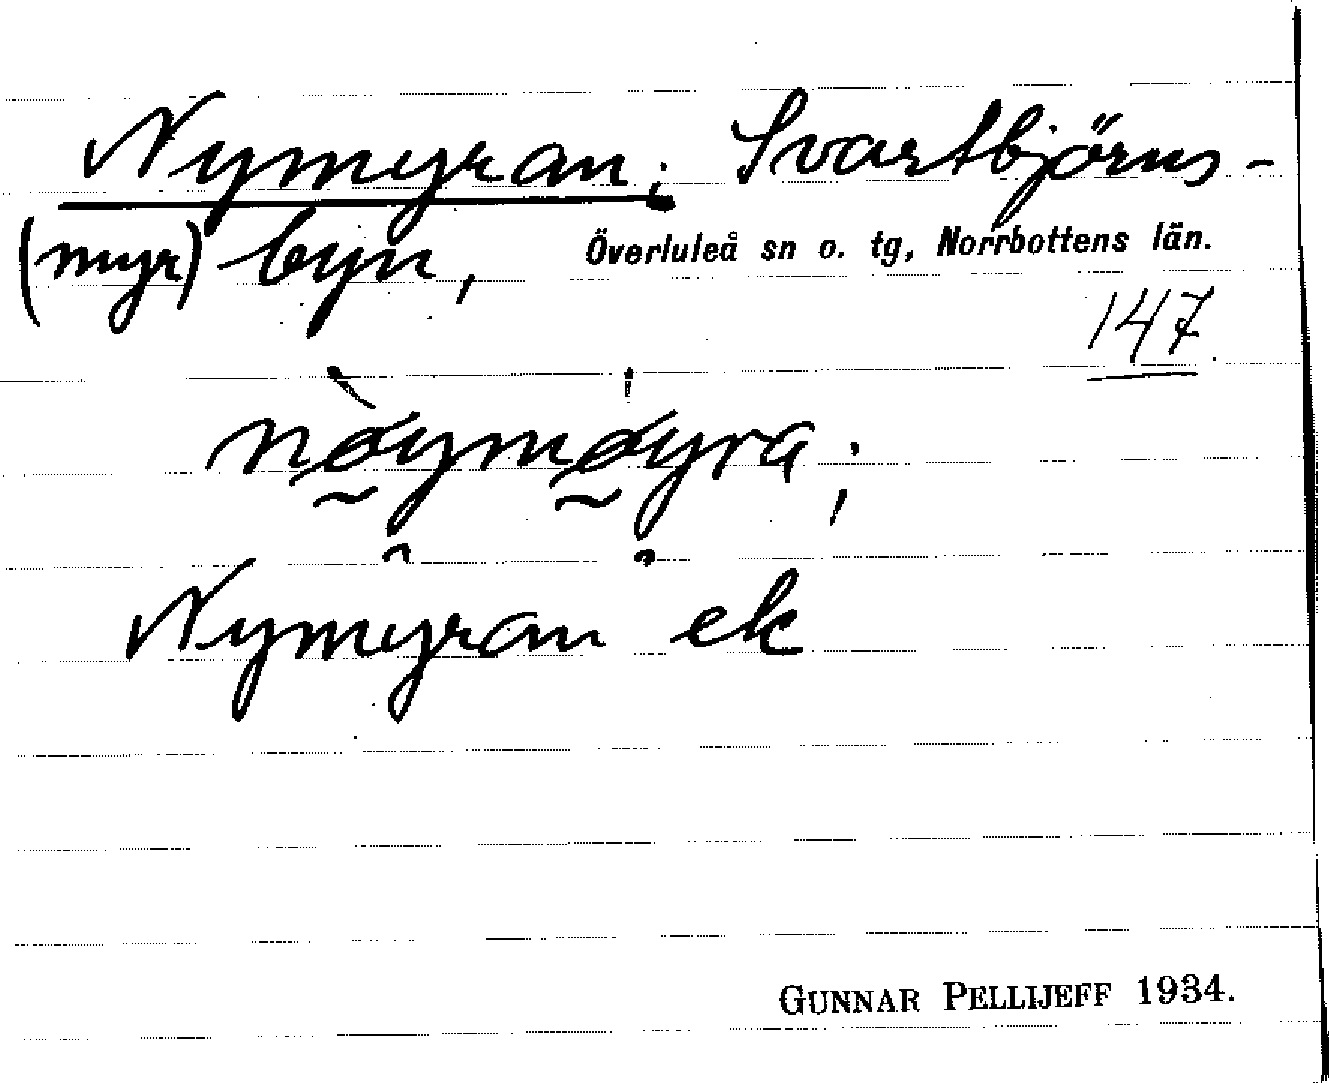 Nymyran; Svartbjörns-
(myr) byn, Överluleå sn o. tg, Norrbottens län.
147
nø̰̀ymø̰yra;
Nymyran ek
GUNNAR PELLIJEFF 1934.